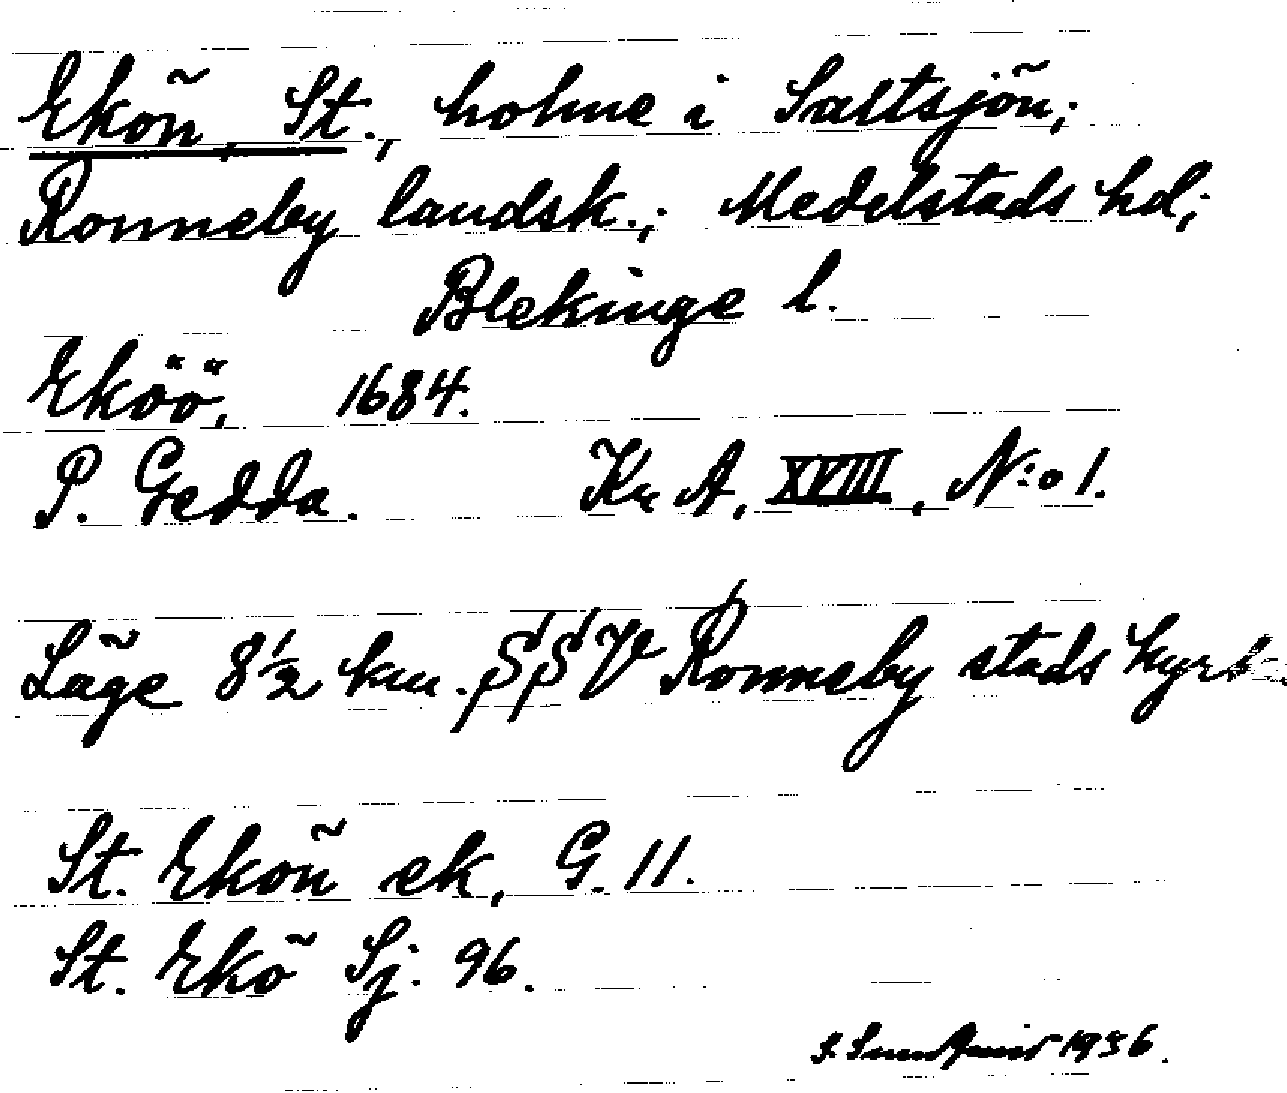 Ekön, St., holme i Saltsjön;
Ronneby landsk.; Medelstads hd;
Blekinge l.
Eköö, 1684.
P. Gedda. Kr A, XVIII, N:o 1.
Läge 8½ km. SSV Ronneby stads kyrk
St. Ekön ek, G. 11.
St. Ekö Sj. 96.
1936.